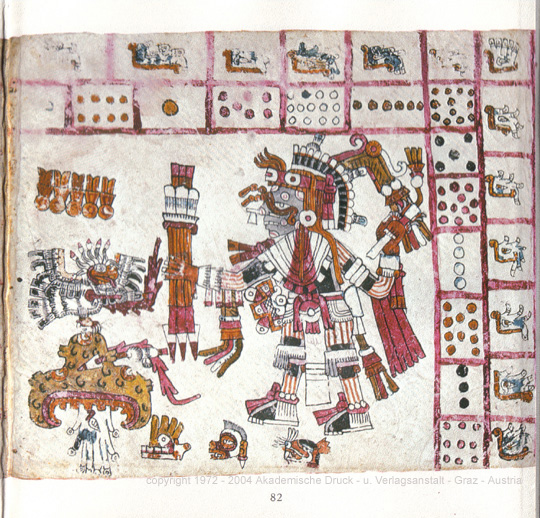 copyright 1972 - 2004 Akademische Druck - u. Verlagsanstalt - Graz - Austria
82